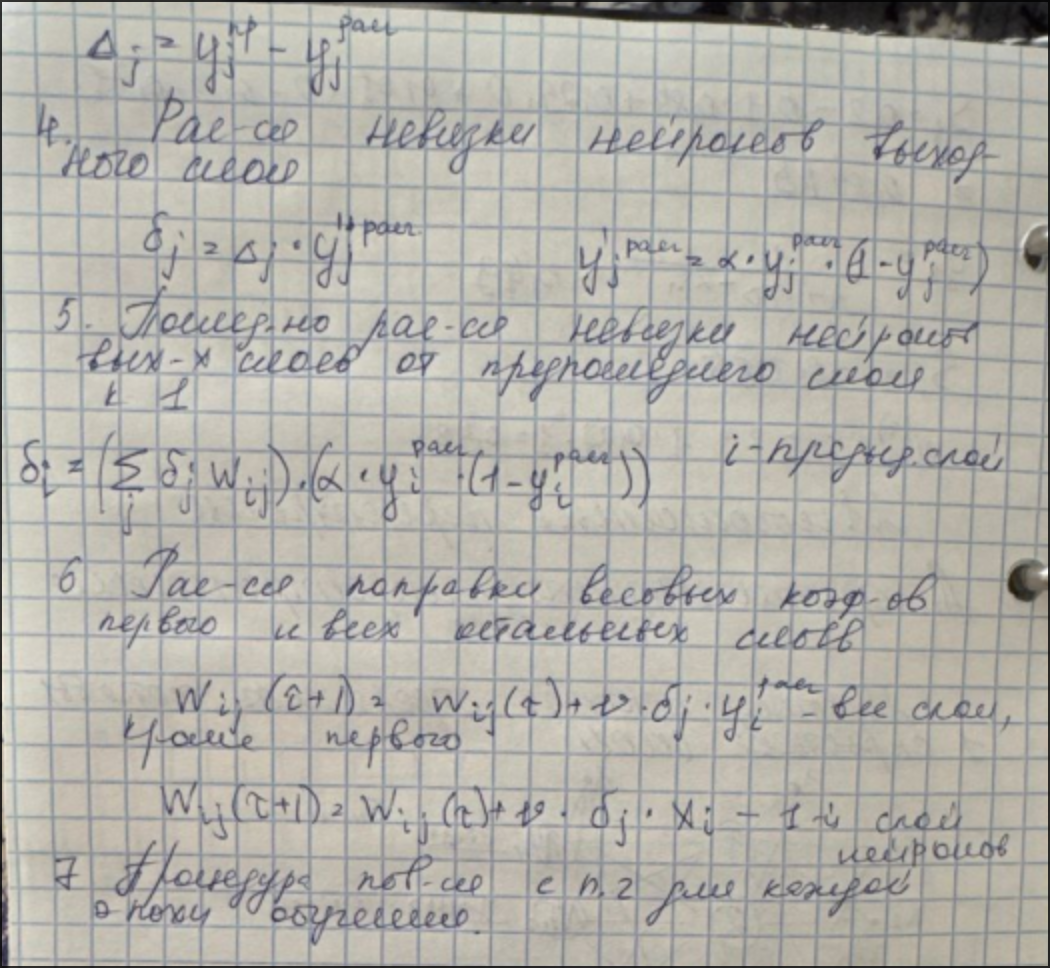 Δj = yj^пр - yj^расч
4. Рас-ся невязки нейронов выход-
ного слоя
δj = Δj · y'j^расч y'j^расч = α · yj^расч · (1 - yj^расч)
5. Послед-но рас-ся невязки нейронов
вых-х слоев от предпоследнего слоя
к 1
δi = (∑j δj wij) · (α · yi^расч · (1 - yi^расч)) i - предыд. слой
6 Рас-ся поправки весовых коэф-ов
первого и всех остальных слоёв
Wij (τ+1) = wij (τ) + ν · δj · yi^расч - все слои,
кроме первого
Wij (τ+1) = Wij (τ) + ν · δj · xj - 1-й слой
нейронов
7 Процедура пов-ся с п. 2 для каждой
эпохи обучения.